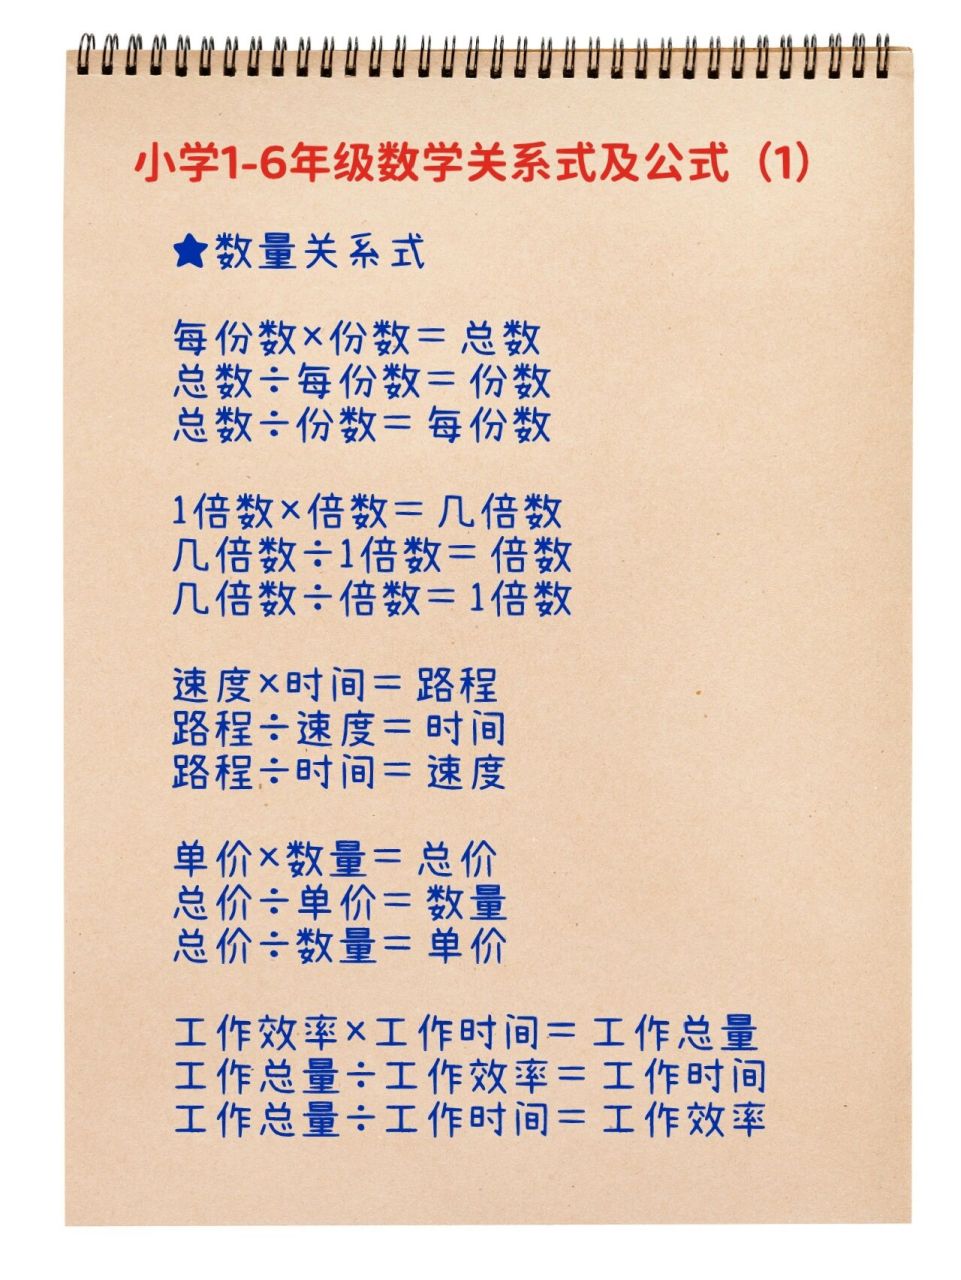 小学1-6年级数学关系式及公式（1）
★数量关系式
每份数×份数＝总数
总数÷每份数＝份数
总数÷份数＝每份数
1倍数×倍数＝几倍数
几倍数÷1倍数＝倍数
几倍数÷倍数＝1倍数
速度×时间＝路程
路程÷速度＝时间
路程÷时间＝速度
单价×数量＝总价
总价÷单价＝数量
总价÷数量＝单价
工作效率×工作时间＝工作总量
工作总量÷工作效率＝工作时间
工作总量÷工作时间＝工作效率